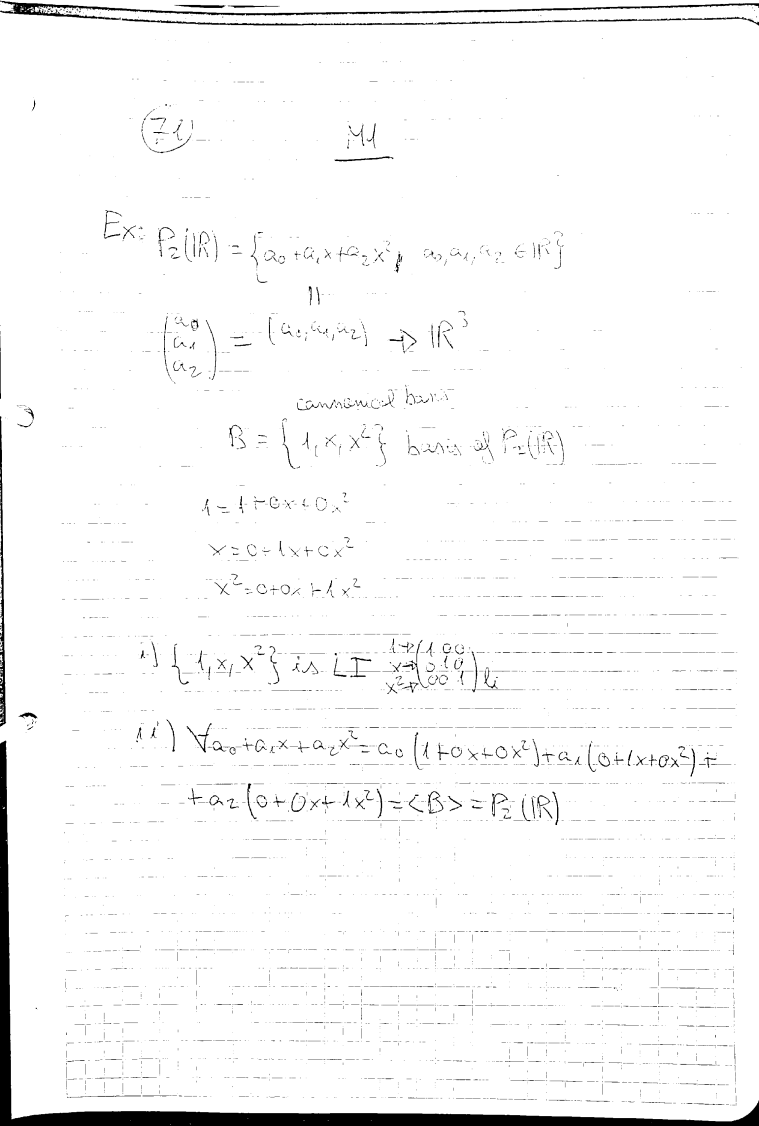 71
M1
Ex: P₂(ℝ) = {a₀+a₁x+a₂x², a₀,a₁,a₂ ∈ ℝ}
॥
(a₀ a₁ a₂) = (a₀,a₁,a₂) → ℝ³
cannonical basis
B = {1, x, x²} basis of P₂(ℝ)
1 = 1+0x+0x²
x = 0+1x+0x²
x² = 0+0x+1x²
i) {1, x, x²} is LI 1→(1 0 0
x→ 0 1 0
x²→ 0 0 1) li
ii) ∀a₀+a₁x+a₂x² = a₀(1+0x+0x²)+a₁(0+1x+0x²)+
+a₂(0+0x+1x²) = <B> = P₂(ℝ)